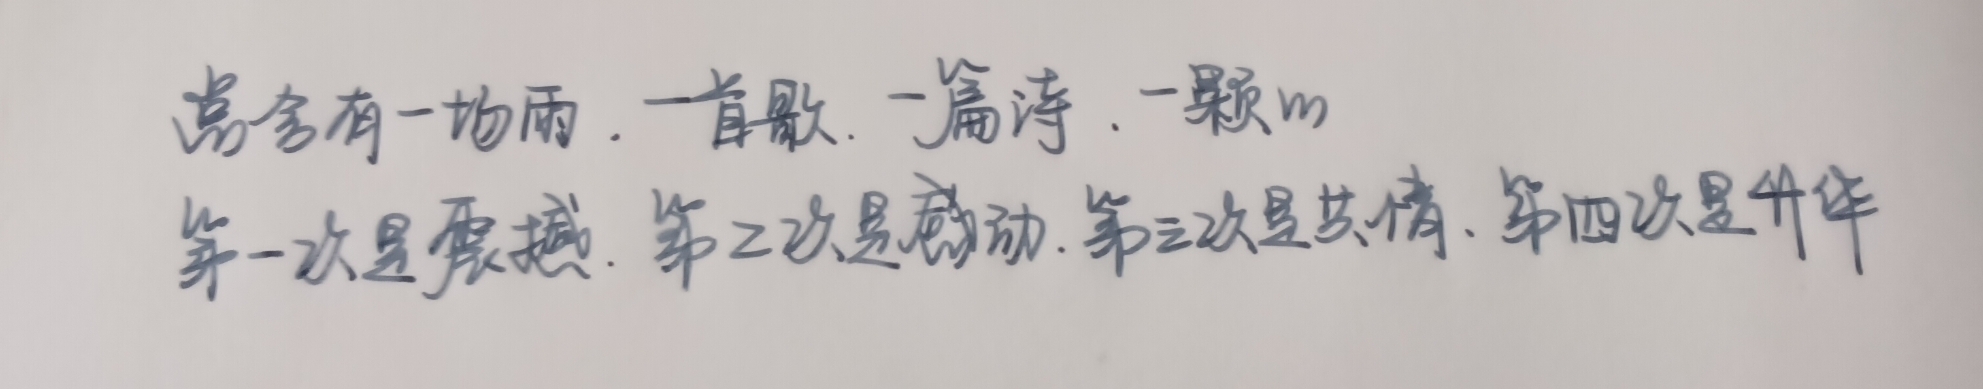 总会有一场雨.一首歌.一篇诗.一颗心
第一次是震撼.第二次是感动.第三次是共情.第四次是升华